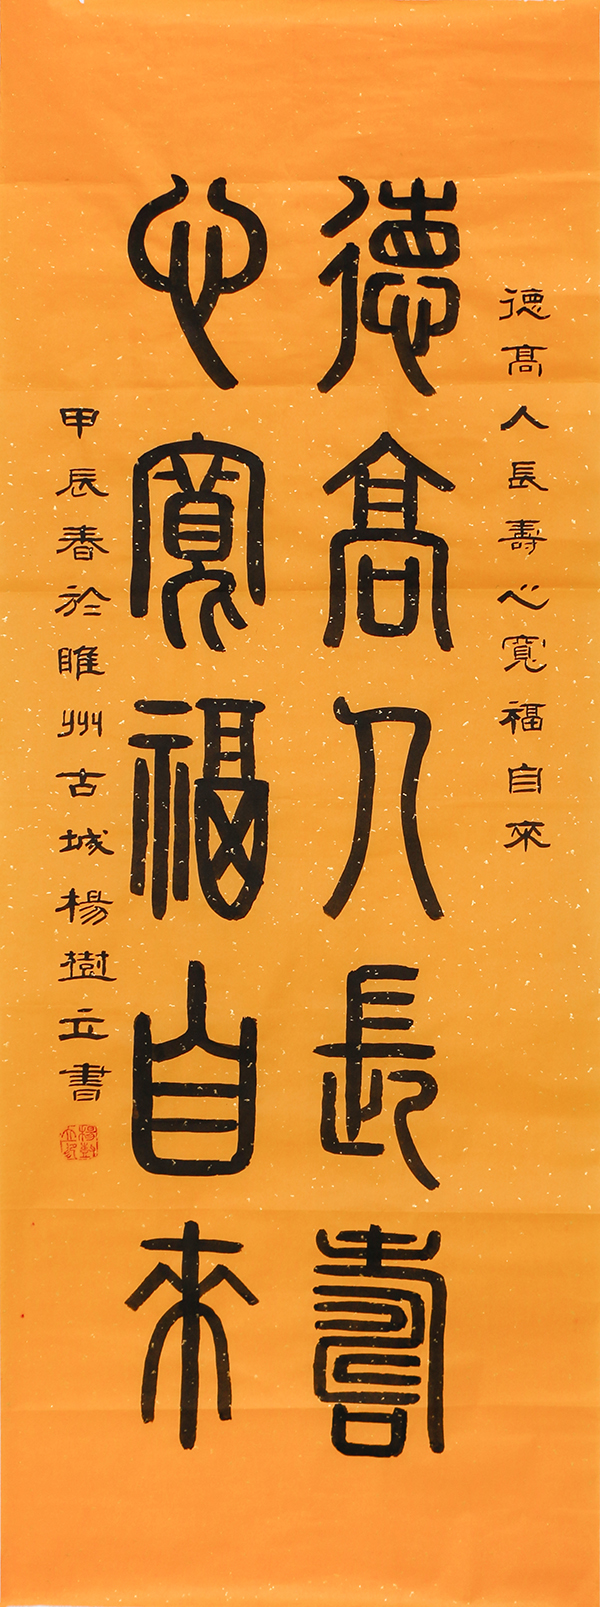 德高人長壽心寬福自來
德高人長壽
心寬福自來
甲辰春於睢州古城楊樹立書